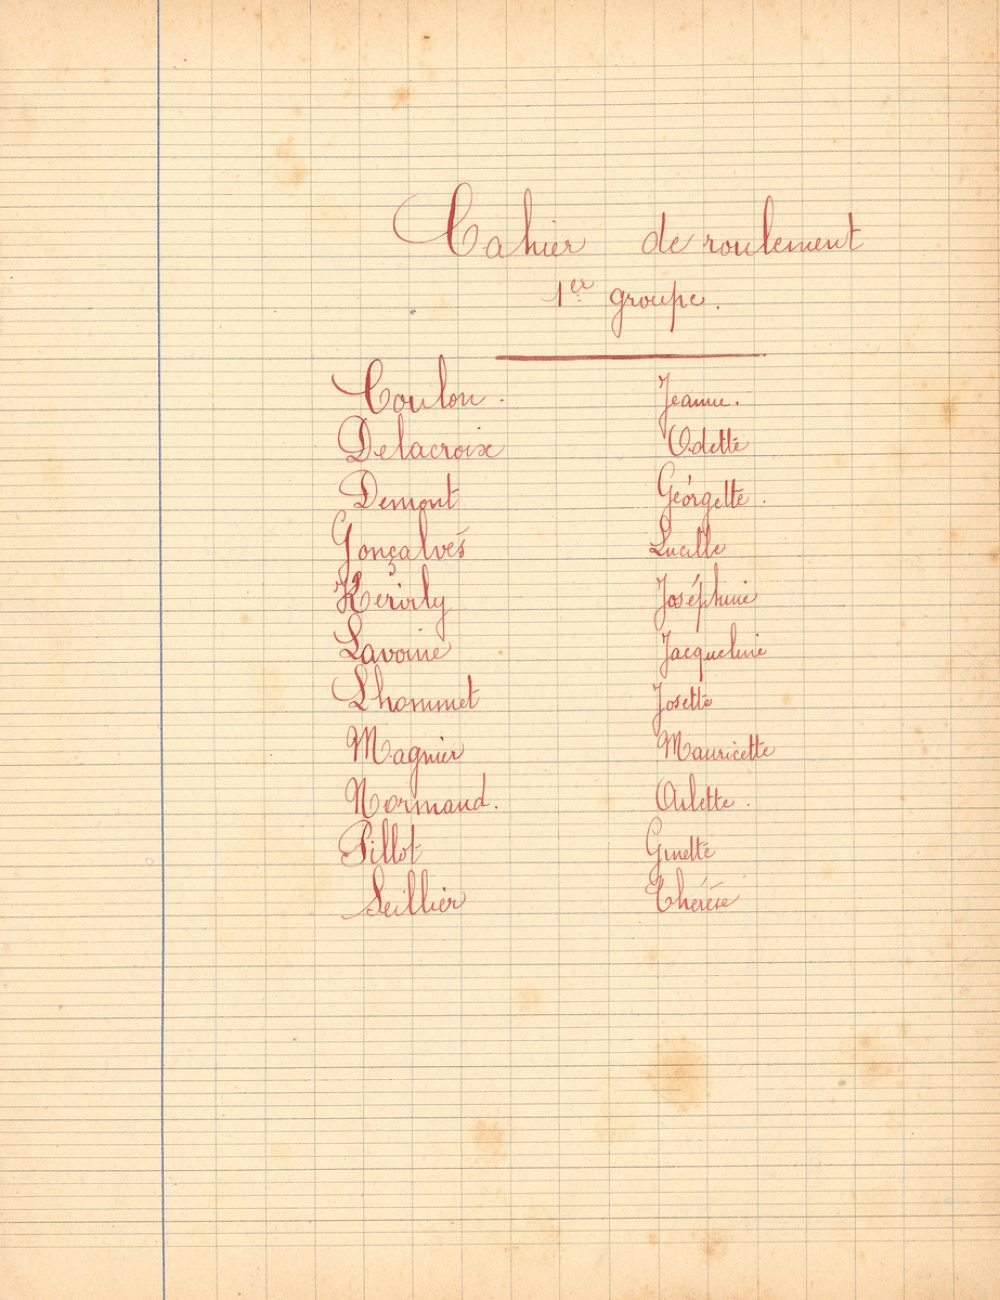 Cahier de roulement
1er groupe.
Coulon. Jeanne.
Delacroix Odette
Demont Georgette.
Gonçalvès Lucille
Kerirly Joséphine
Lavoine Jacqueline
Lhommet Josette
Magnier Mauricette
Normand. Arlette.
Pillot Ginette
Seillier Thérèse